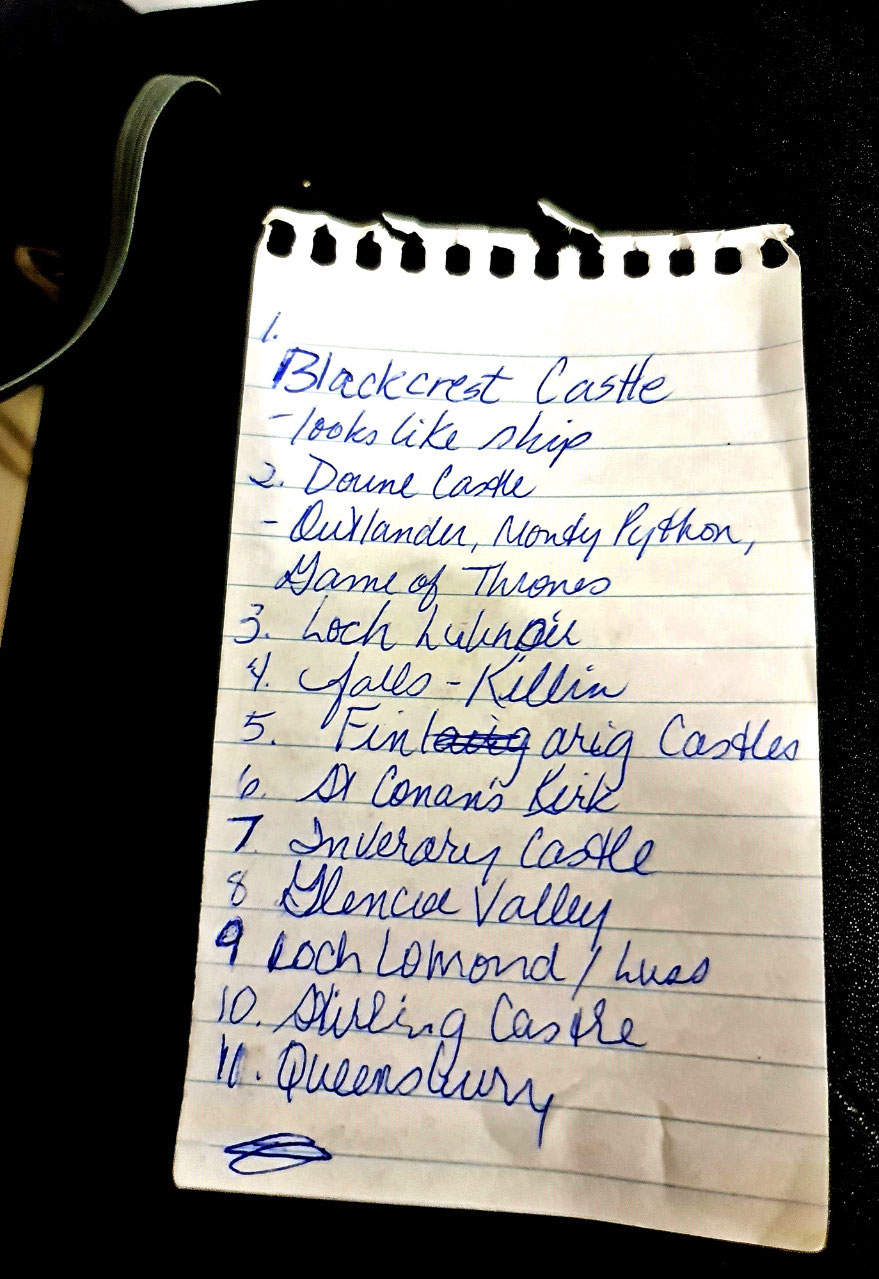 1.
Blackcrest Castle
- looks like ship
2. Doune Castle
- Outlander, Monty Python,
Game of Thrones
3. Loch Lubnair
4. falls - Killin
5. Finlarig arig Castles
6. St Conan's Kirk
7. Inverary Castle
8 Glencoe Valley
9 Loch Lomond / Luss
10. Stirling Castle
11. Queensbury